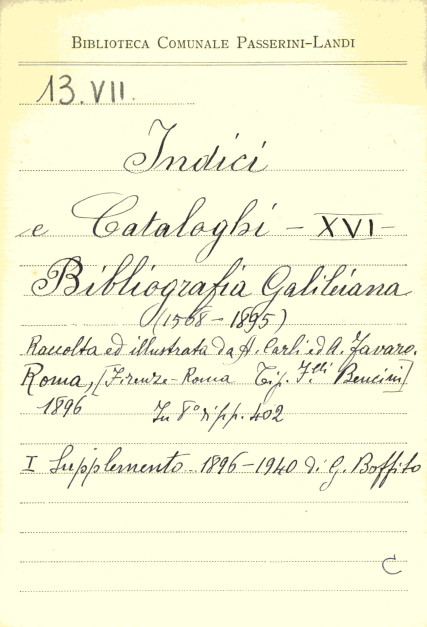 BIBLIOTECA COMUNALE PASSERINI-LANDI
13.VII.
Indici
e Cataloghi - XVI -
Bibliografia Galileiana
(1568 - 1895)
Raccolta ed illustrata da A. Carli ed A. Favaro.
Roma, [Firenze-Roma Tip. F.lli Bencini]
1896 In 8° di pp. 402
I Supplemento 1896-1940 di G. Boffito
C